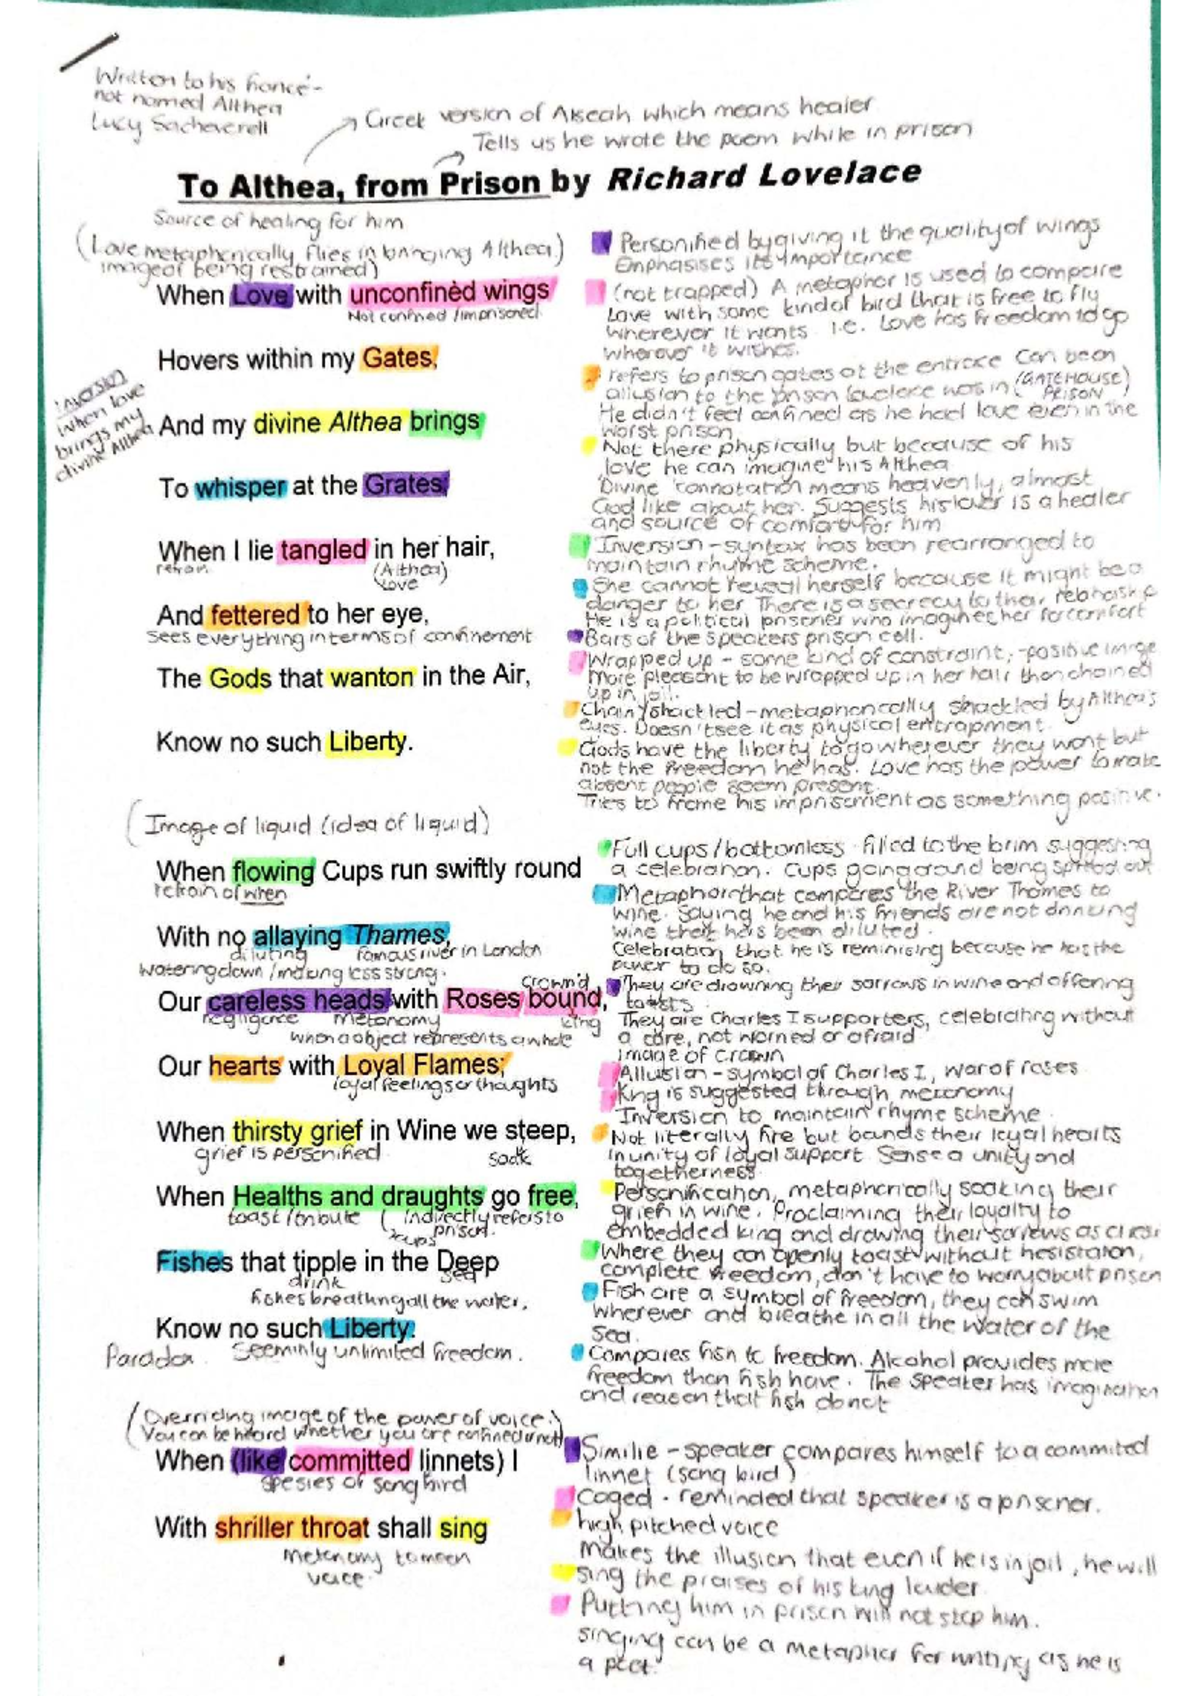 Written to his fiancé -
not named Althea
Lucy Sacheverell
Greek version of Alseah which means healer
Tells us he wrote the poem while in prison
To Althea, from Prison by Richard Lovelace
Source of healing for him
(Love metaphorically flies in bringing Althea.)
image of being restrained)
When Love with unconfinèd wings
Not confined / imprisoned
Hovers within my Gates,
Inversion
when love
brings my
divine Althea
And my divine Althea brings
To whisper at the Grates;
When I lie tangled in her hair,
(Althea)
Love
And fettered to her eye,
Sees everything in terms of confinement
The Gods that wanton in the Air,
Know no such Liberty.
Personified by giving it the quality of wings
Emphasises its importance
(not trapped) A metaphor is used to compare
Love with some kind of bird that is free to fly
wherever it wants i.e. Love has freedom to go
wherever it wishes.
refers to prison gates at the entrace Can been
allusion to the prison Lovelace was in (GATEHOUSE PRISON)
He didn't feel confined as he had love even in the
worst prison
Not there physically but because of his
love he can imagine his Althea
'Divine' connotation means heavenly, almost
God like about her. Suggests his lover is a healer
and source of comfort for him
Inversion - syntax has been rearranged to
maintain rhyme scheme.
She cannot reveal herself because it might be a
danger to her There is a secrecy to their relationship
He is a political prisoner who imagines her for comfort
Bars of the speakers prison cell.
Wrapped up - some kind of constraint, - positive image
more pleasant to be wrapped up in her hair than chained
up in jail.
Chain/shackled - metaphorically shackled by Althea's
eyes. Doesn't see it as physical entrapment.
Gods have the liberty to go wherever they want but
not the freedom he has. Love has the power to make
absent people seem present.
Tries to frame his imprisonment as something positive.
(Image of liquid (idea of liquid)
When flowing Cups run swiftly round
refrain of when
With no allaying Thames,
diluting famous river in London
Watering down / making less strong.
crown'd
Our careless heads with Roses bound,
negligence metonomy king
when a object represents a whole
Our hearts with Loyal Flames;
loyal feelings or thoughts
When thirsty grief in Wine we steep,
grief is personified soak
When Healths and draughts go free,
toast / tribute (indirectly refers to
cups prison.
Fishes that tipple in the Deep
drink sea
fishes breathing all the water.
Know no such Liberty.
Paradox Seeminly unlimited freedom.
Full cups / bottomless - filled to the brim suggesting
a celebration. Cups going around being
Metaphor that compares the River Thames to
wine. Saying he and his friends are not drinking
wine that has been diluted.
Celebration that he is reminising because he has the
power to do so.
They are drowning their sorrows in wine and offering
toasts
They are Charles I supporters, celebrating without
a care, not worried or afraid
image of crown
Allusion - symbol of Charles I, war of roses
King is suggested through metonomy
Inversion to maintain rhyme scheme.
Not literally fire but bands their loyal hearts
in unity of loyal support. Sense a unity and
togetherness.
Personification, metaphorically soaking their
grief in wine. Proclaiming their loyalty to
embedded king and drowing their sorrows as
Where they can openly toast without hesistation,
complete freedom, don't have to worry about prison
Fish are a symbol of freedom, they can swim
wherever and breathe in all the water of the
sea.
Compares fish to freedom. Alcohol provides more
freedom than fish have. The speaker has imagination
and reason that fish do not
(Overriding image of the power of voice.)
You can be heard whether you are confined or not)
When (like committed linnets) I
Spesies of songbird
With shriller throat shall sing
Metonomy to mean
voice.
Similie - speaker compares himself to a commited
linnet (song bird)
Caged - reminded that speaker is a prisoner.
high pitched voice
Makes the illusion that even if he is in jail, he will
sing the praises of his king louder.
Putting him in prison will not stop him.
singing can be a metaphor for writing as he is
a poet.